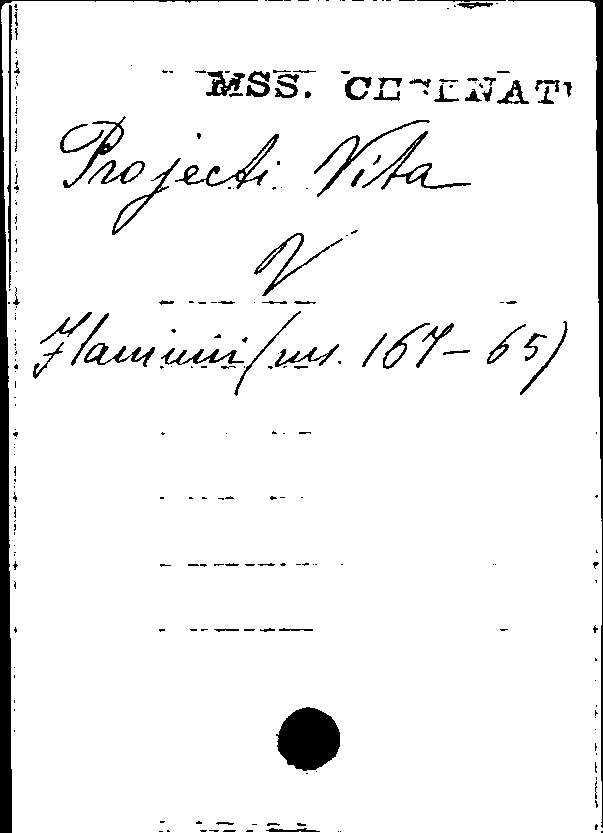 MSS. CESENATI
Projecti Vita
V
Flaminii (ms. 167-65)